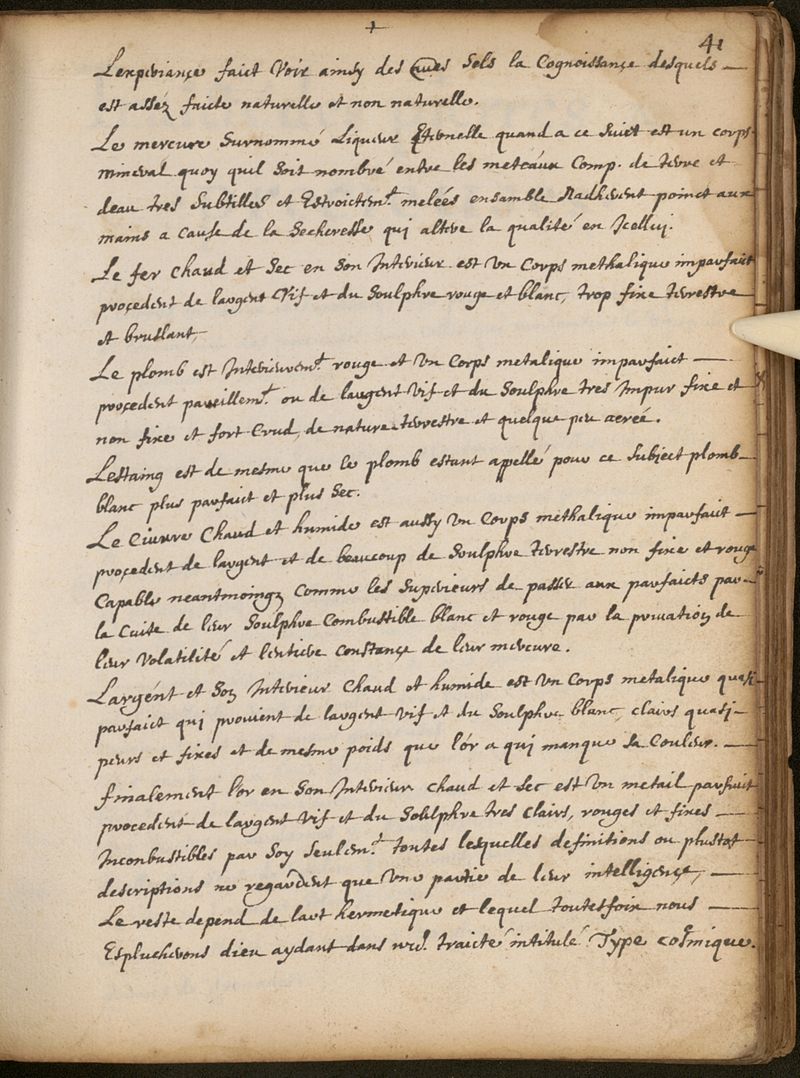 41
Lexperiançe faict Voir ainsy des sels la Cognoissançe desquels
est asséz faicte naturelle et non naturelle.
Le mercure surnommé Liqueur Eternelle quand a ce suiet est un corps
mineral quoy quil soit nombré entre les metcaux Comp. de terre et
deau tres subtilles et Estroictemt. melées ensamble Nadherent poinct aux
mains a Cause de la secheresse qui altere la qualité en Jcelluy.
Le fer chaud et sec en son Interieur est Un Corps methalique imparfaict
proçedent de largent Vif et du soulphre rouge et blanc, trop fixe terrestre
et bruslant,
Le plomb est Interieuremt. rouge et Un Corps metalique imparfaict
proçedent pareillemt. ou de largent vif et du soulphre tres Impur fixe et
non fixe et fort Crud, de nature terrestre et quelque peu aereé.
Lestaing est de mesme que le plomb estant appellé pour ce subject plomb
blanc plus parfaict et plus sec.
Le Ciuure Chaud et humide est aussy Un Corps methalique imparfaict
proçedent de largent et de beaucoup de soulphre terrestre non fixe et rouge
Capable neantmoingz Comme les superieurs de passer aux parfaicts par
la Cuite de leur soulphre Combustible blanc et rouge par la priuation de
leur Volatilité et lentiere Constançe de leur mercure.
Largent et Son Interieur Chaud et humide est Un Corps metalique quasi
parfaict qui prouient de largent vif et du soulphre blanc, clairs quasi
purs et fixes et de mesme poids que lór a qui manque sa Couleur.
finalement lor en son Interieur chaud et sec est Un metail parfaict
proçedent de largent vif et du solulphre tres clairs, rouges et fixes
Inconbustibles par soy seulemt. toutes lesquelles definitions ou plustot
descriptions ne regardent que Une partie de leur intelligençe,
Le reste depend de lart hermetique et lequel toutesfoix nous
Espluckerons dieu aydant dans nre. traicté intitulé Type cosmique.